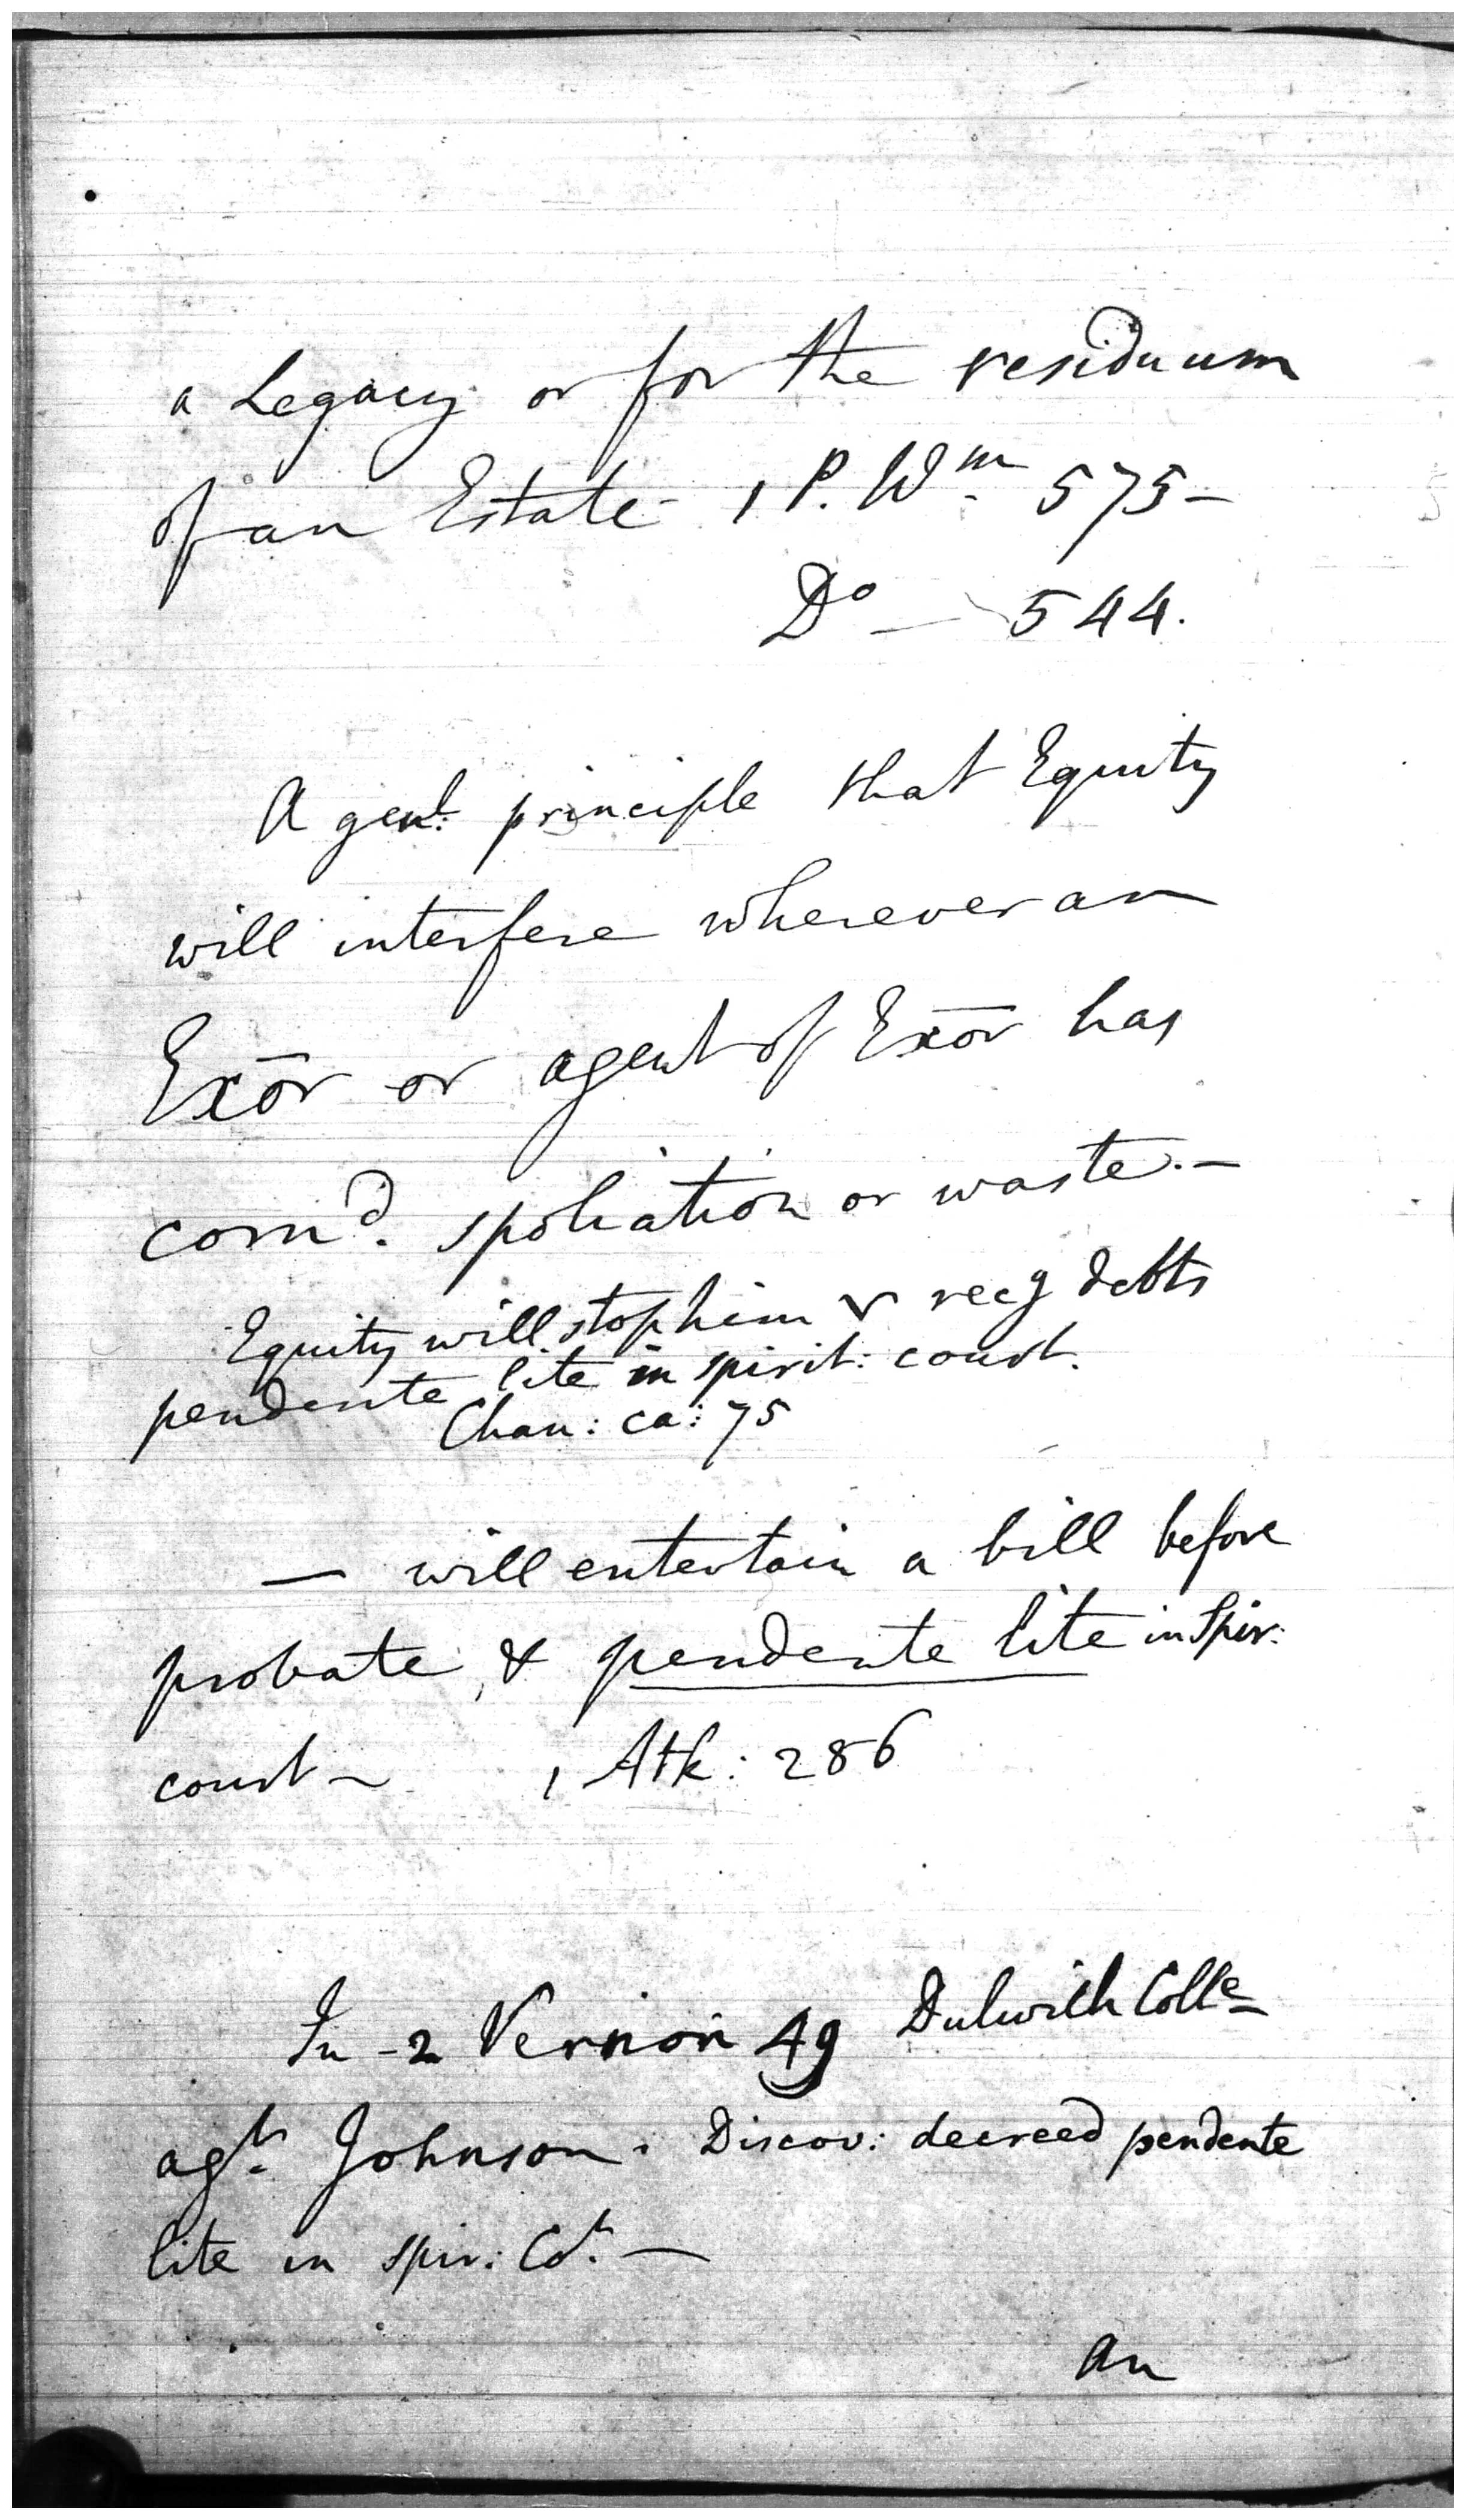 a Legacy or for the residuum
of an Estate - 1 P. Wm. 575 -
Do — 544.
A genl: principle that Equity
will interfere wherever an
Exōr or agent of Exōr has
comd. spoliation or waste. —
Equity will stop him recg debts
pendente lite in spirit: court.
Chan: ca: 75
— will entertain a bill before
probate, & pendente lite in Spir:
court — 1 Atk: 286
In - 2 Vernon 49 Dulwich Colle-
agt. Johnson. Discov: decreed pendente
lite in spir: Ct. —
An